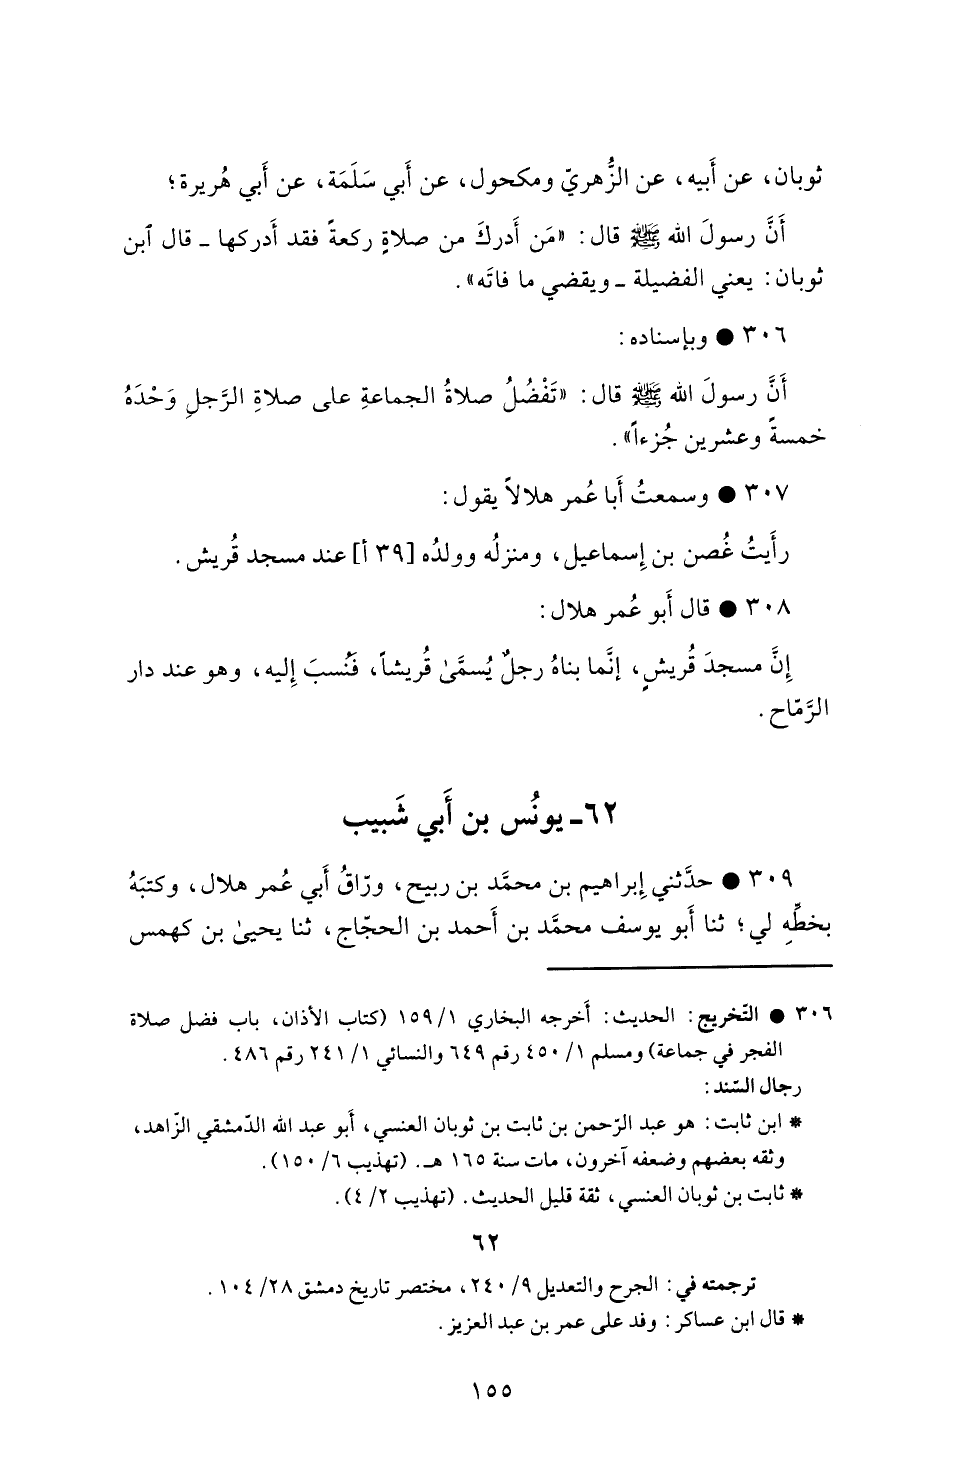 ثوبان، عن أَبيه، عن الزُّهريّ ومكحول، عن أَبي سَلَمَة، عن أَبي هُريرة؛
أَنَّ رسولَ الله ﷺ قال: «مَن أَدركَ من صلاةٍ ركعةً فقد أَدركها ـ قال ٱبن
ثوبان: يعني الفضيلة ـ ويقضي ما فاتَه».
٣٠٦ ● وبإسناده:
أَنَّ رسولَ الله ﷺ قال: «تَفْضُلُ صلاةُ الجماعةِ على صلاةِ الرَّجلِ وَحْدَهُ
خمسةً وعشرين جُزءاً».
٣٠٧ ● وسمعتُ أَبا عُمر هلالاً يقول:
رأَيتُ غُصن بن إِسماعيل، ومنزلُه وولدُه [٣٩ أ] عند مسجد قُريش.
٣٠٨ ● قال أَبو عُمر هلال:
إِنَّ مسجدَ قُريشٍ، إنَّما بناهُ رجلٌ يُسمَّىٰ قُريشاً، فَنُسبَ إِليه، وهو عند دار
الرَّمّاح.
٦٢ـ يونُس بن أَبي شَبيب
٣٠٩ ● حدَّثني إِبراهيم بن محمَّد بن ربيح، ورّاقُ أَبي عُمر هلال، وكتبَهُ
بخطِّهِ لي؛ ثنا أَبو يوسف محمَّد بن أَحمد بن الحجّاج، ثنا يحيىٰ بن كهمس
٣٠٦ ● التّخريج: الحديث: أَخرجه البخاري ١/ ١٥٩ (كتاب الأذان، باب فضل صلاة
الفجر في جماعة) ومسلم ١/ ٤٥٠ رقم ٦٤٩ والنسائي ١/ ٢٤١ رقم ٤٨٦.
رجال السّند:
* ابن ثابت: هو عبد الرّحمن بن ثابت بن ثوبان العنسي، أَبو عبد الله الدّمشقي الزّاهد،
وثقه بعضهم وضعفه آخرون، مات سنة ١٦٥ هـ. (تهذيب ٦/ ١٥٠).
* ثابت بن ثوبان العنسي، ثقة قليل الحديث. (تهذيب ٢/ ٤).
٦٢
ترجمته في: الجرح والتعديل ٩/ ٢٤٠، مختصر تاريخ دمشق ٢٨/ ١٠٤.
* قال ابن عساكر: وفد على عمر بن عبد العزيز.
١٥٥